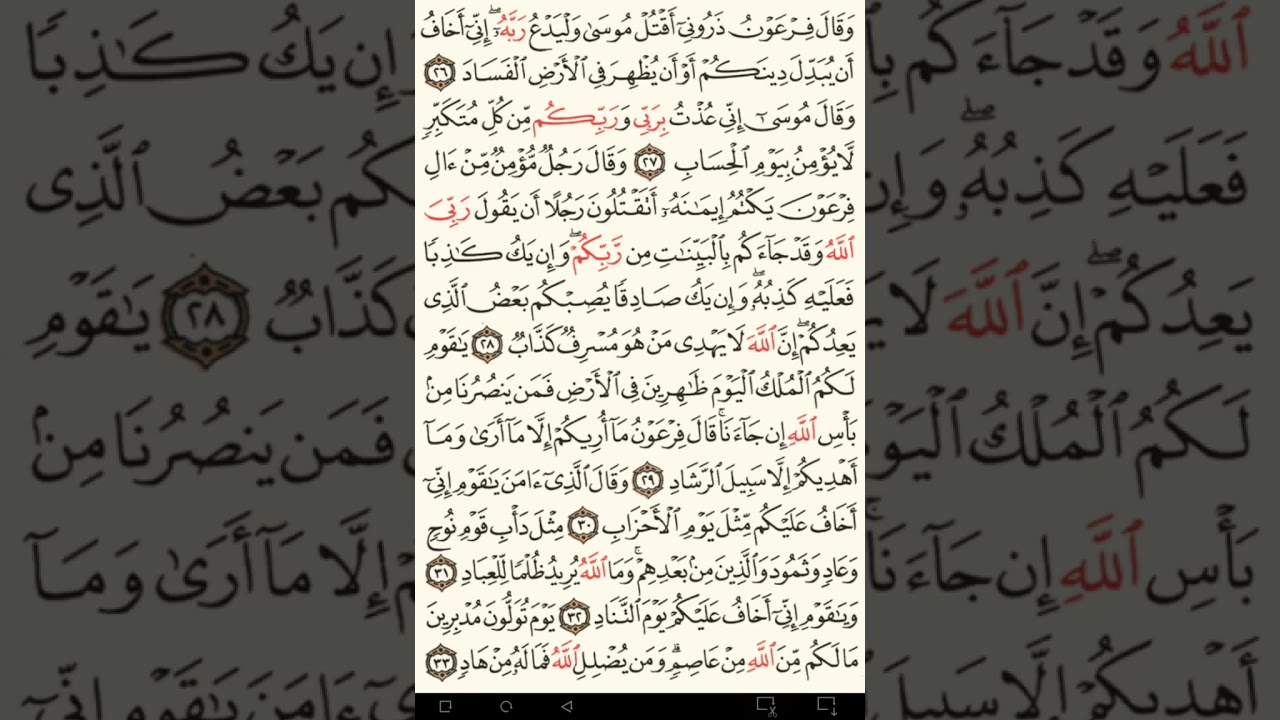 وَقَالَ فِرْعَوْنُ ذَرُونِىٓ أَقْتُلْ مُوسَىٰ وَلْيَدْعُ رَبَّهُۥٓ ۖ إِنِّىٓ أَخَافُ
أَن يُبَدِّلَ دِينَكُمْ أَوْ أَن يُظْهِرَ فِى ٱلْأَرْضِ ٱلْفَسَادَ ٢٦
وَقَالَ مُوسَىٰٓ إِنِّى عُذْتُ بِرَبِّى وَرَبِّكُم مِّن كُلِّ مُتَكَبِّرٍ
لَّا يُؤْمِنُ بِيَوْمِ ٱلْحِسَابِ ٢٧ وَقَالَ رَجُلٌ مُّؤْمِنٌ مِّنْ ءَالِ
فِرْعَوْنَ يَكْتُمُ إِيمَـٰنَهُۥٓ أَتَقْتُلُونَ رَجُلًا أَن يَقُولَ رَبِّىَ
ٱللَّهُ وَقَدْ جَآءَكُم بِٱلْبَيِّنَـٰتِ مِن رَّبِّكُمْ ۖ وَإِن يَكُ كَـٰذِبًا
فَعَلَيْهِ كَذِبُهُۥ ۖ وَإِن يَكُ صَادِقًا يُصِبْكُم بَعْضُ ٱلَّذِى
يَعِدُكُمْ ۖ إِنَّ ٱللَّهَ لَا يَهْدِى مَنْ هُوَ مُسْرِفٌ كَذَّابٌ ٢٨ يَـٰقَوْمِ
لَكُمُ ٱلْمُلْكُ ٱلْيَوْمَ ظَـٰهِرِينَ فِى ٱلْأَرْضِ فَمَن يَنصُرُنَا مِنۢ
بَأْسِ ٱللَّهِ إِن جَآءَنَا ۚ قَالَ فِرْعَوْنُ مَآ أُرِيكُمْ إِلَّا مَآ أَرَىٰ وَمَآ
أَهْدِيكُمْ إِلَّا سَبِيلَ ٱلرَّشَادِ ٢٩ وَقَالَ ٱلَّذِىٓ ءَامَنَ يَـٰقَوْمِ إِنِّىٓ
أَخَافُ عَلَيْكُم مِّثْلَ يَوْمِ ٱلْأَحْزَابِ ٣٠ مِثْلَ دَأْبِ قَوْمِ نُوحٍ
وَعَادٍ وَثَمُودَ وَٱلَّذِينَ مِنۢ بَعْدِهِمْ ۚ وَمَا ٱللَّهُ يُرِيدُ ظُلْمًا لِّلْعِبَادِ ٣١
وَيَـٰقَوْمِ إِنِّىٓ أَخَافُ عَلَيْكُمْ يَوْمَ ٱلتَّنَادِ ٣٢ يَوْمَ تُوَلُّونَ مُدْبِرِينَ
مَا لَكُم مِّنَ ٱللَّهِ مِنْ عَاصِمٍ ۗ وَمَن يُضْلِلِ ٱللَّهُ فَمَا لَهُۥ مِنْ هَادٍ ٣٣